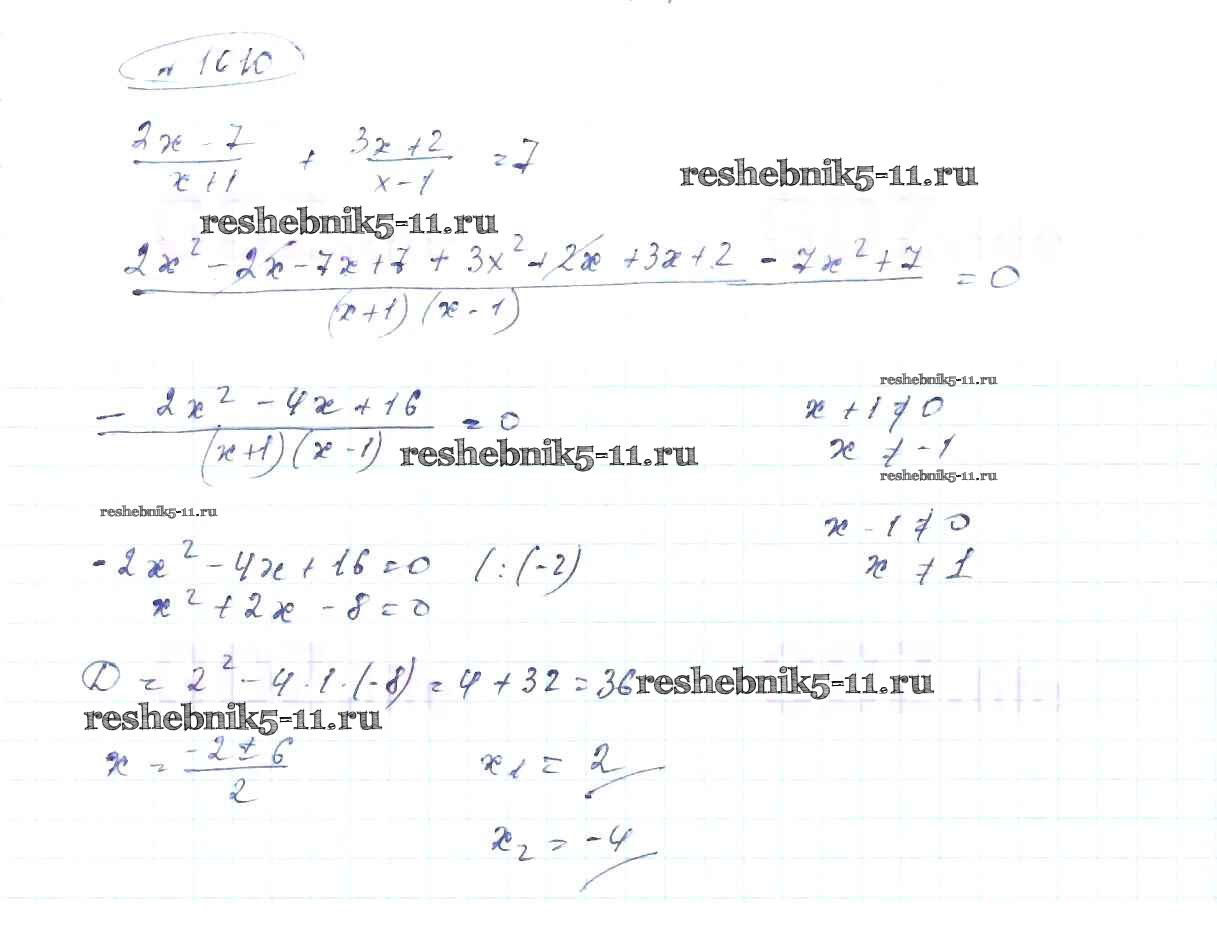 № 1610
(2x - 7)/(x + 1) + (3x + 2)/(x - 1) = 7
reshebnik5-11.ru
reshebnik5-11.ru
(2x² - 2x - 7x + 7 + 3x² + 2x + 3x + 2 - 7x² + 7)/((x + 1)(x - 1)) = 0
reshebnik5-11.ru
- (2x² - 4x + 16)/((x+1)(x - 1)) = 0
x + 1 ≠ 0
reshebnik5-11.ru
x ≠ -1
reshebnik5-11.ru
reshebnik5-11.ru
x - 1 ≠ 0
-2x² - 4x + 16 = 0 | : (-2)
x ≠ 1
x² + 2x - 8 = 0
D = 2² - 4 · 1 · (-8) = 4 + 32 = 36
reshebnik5-11.ru
reshebnik5-11.ru
x = (-2 ± 6)/2
x₁ = 2
x₂ = -4